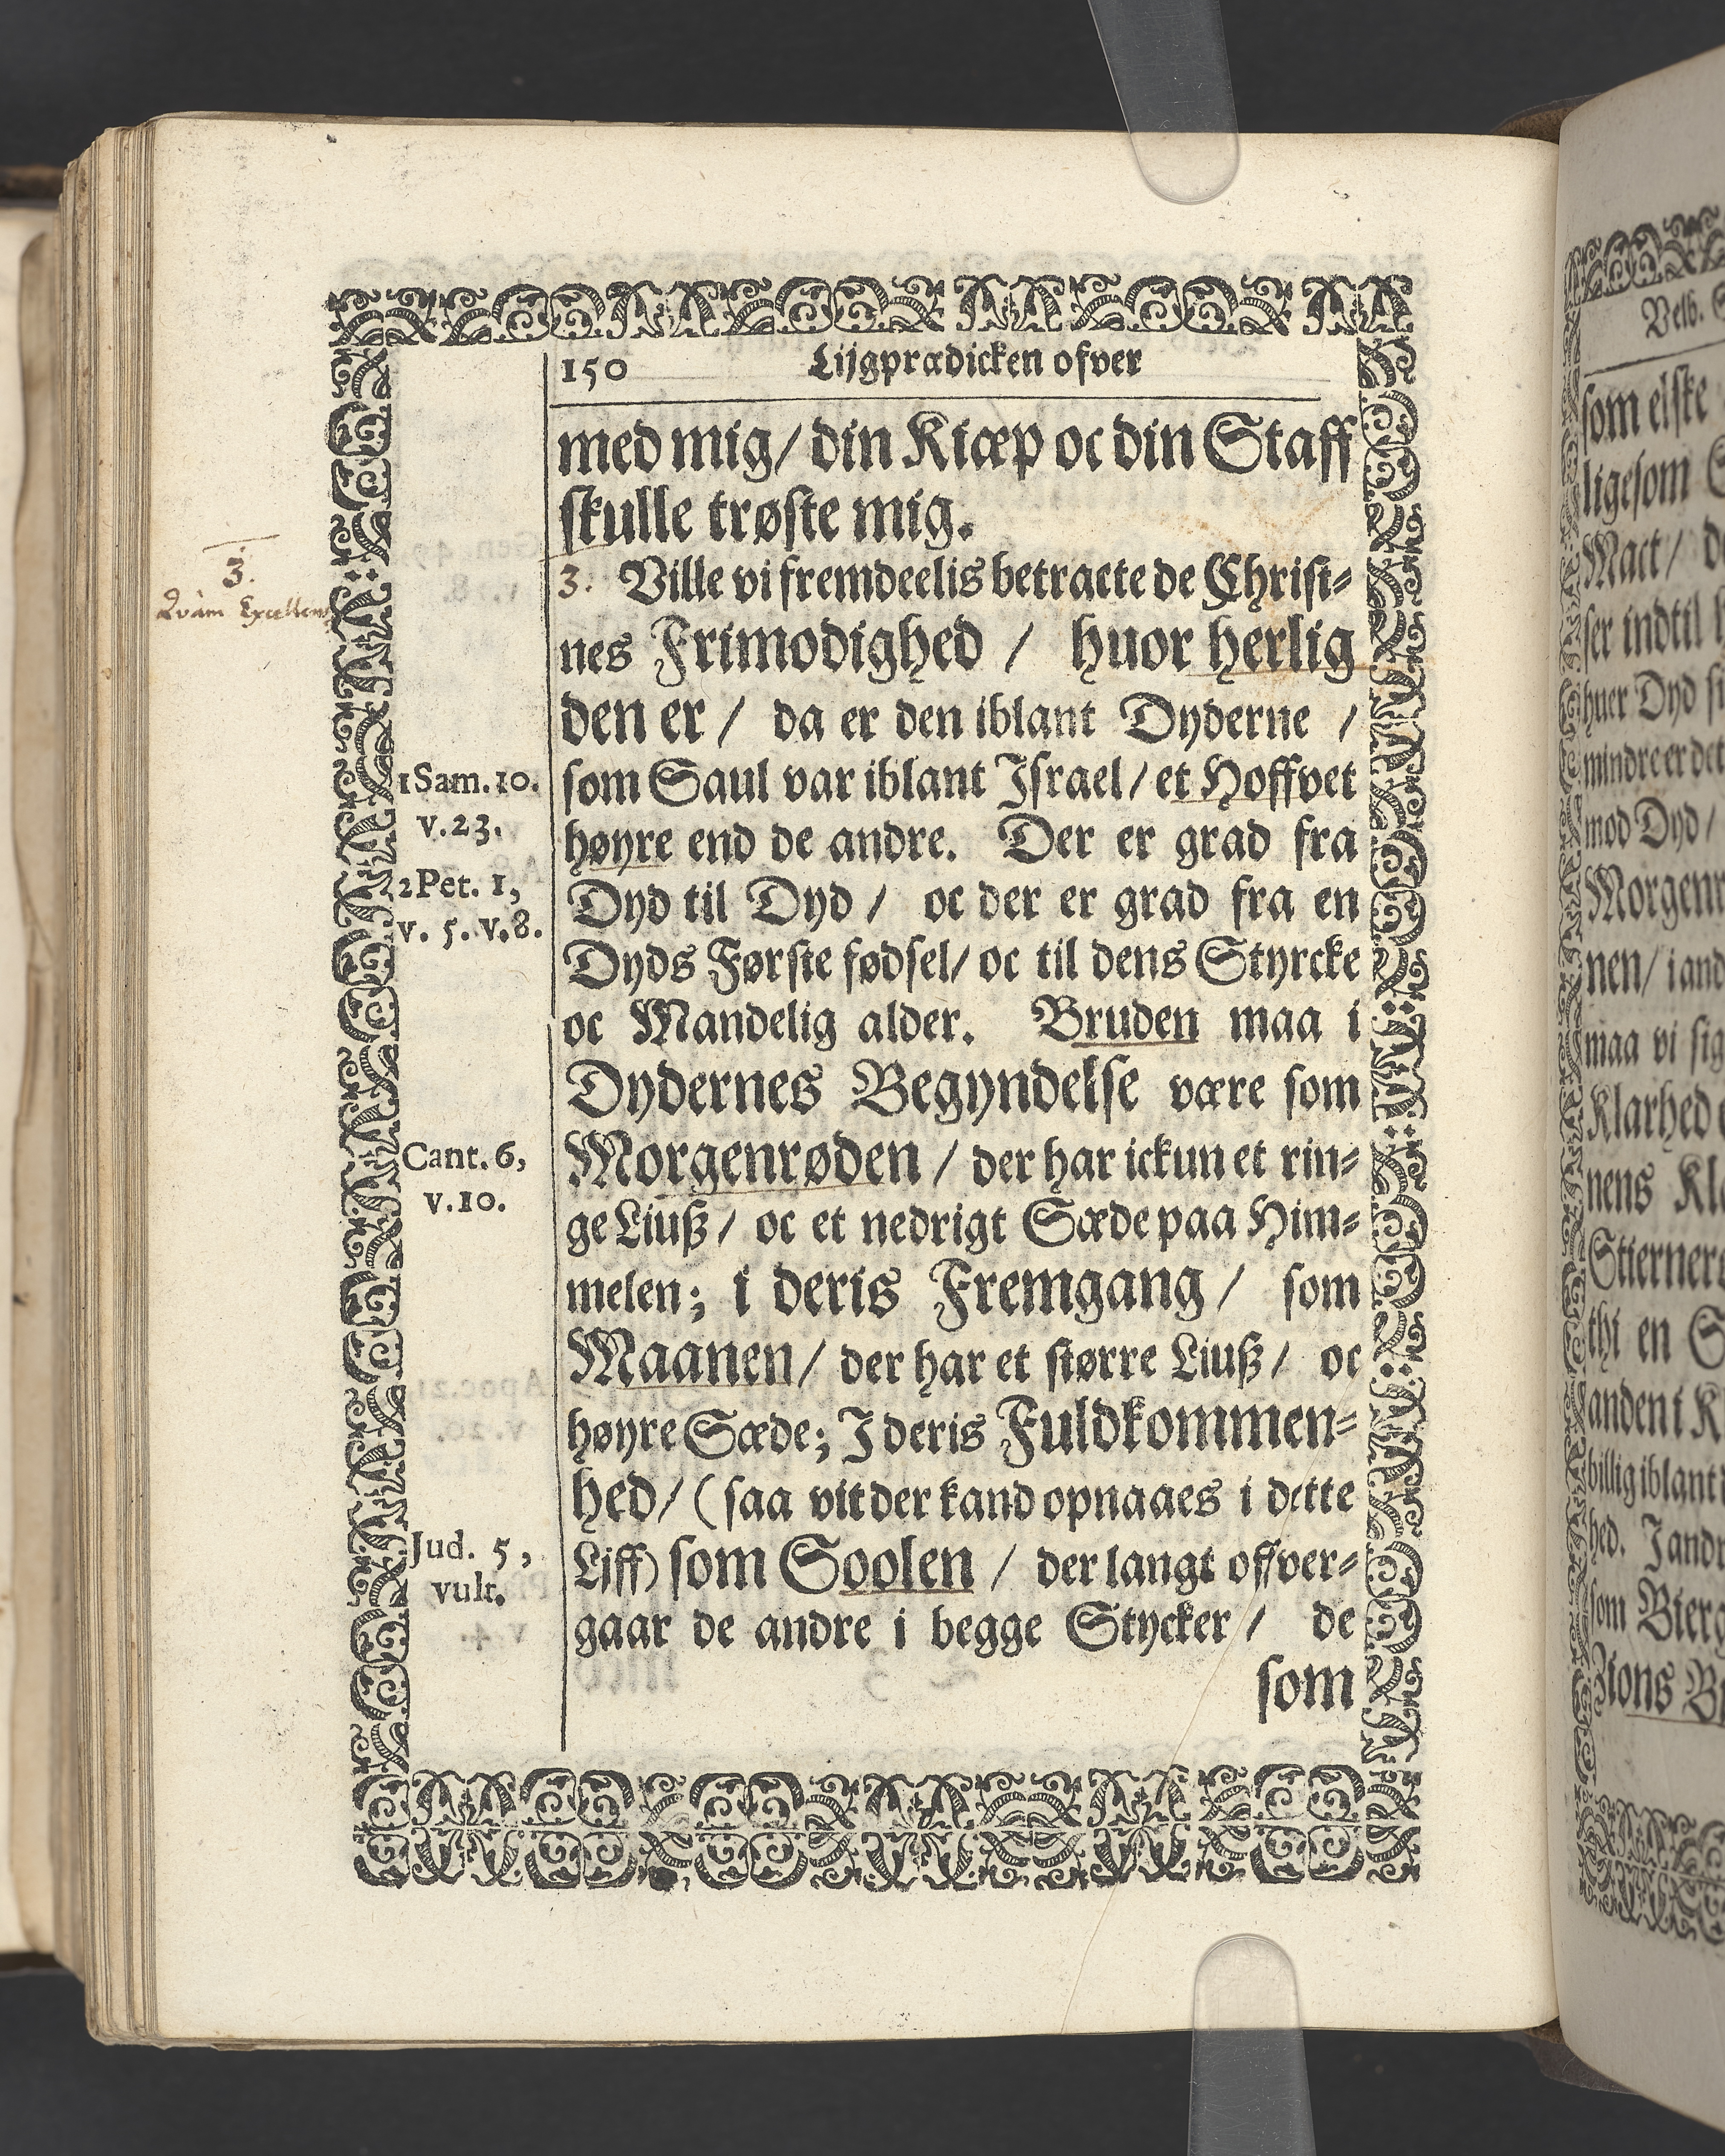 150 Lijgprædicken ofver
med mig/ din Kiæp oc din Staff
skulle trøste mig.
3. Ville vi fremdeelis betracte de Christ-
nes Frimodighed / huor herlig
den er / da er den iblant Dyderne /
som Saul var iblant Israel/ et Hoffvet
høyre end de andre. Der er grad fra
Dyd til Dyd / oc der er grad fra en
Dyds Første fødsel/ oc til dens Styrcke
oc Mandelig alder. Bruden maa i
Dydernes Begyndelse være som
Morgenrøden / der har ickun et rin-
ge Liuß / oc et nedrigt Sæde paa Him-
melen; i deris Fremgang / som
Maanen / der har et større Liuß / oc
høyre Sæde; I deris Fuldkommen-
hed/ (saa vit der kand opnaaes i dette
Liff) som Soolen / der langt offver-
gaar de andre i begge Stycker / de
som
3.
Qvàm
1 Sam. 10.
v. 23.
2 Pet. 1,
v. 5. v. 8.
Cant. 6,
v. 10.
Jud. 5,
vult.
Velb.
som elske
ligesom
Mact /
ser indtil
huer Dyd
mindre er det
mod Dyd /
nen/ i
maa vi
Klarhed
nens
thi en
anden i
billig iblant
hed.
som
Zions